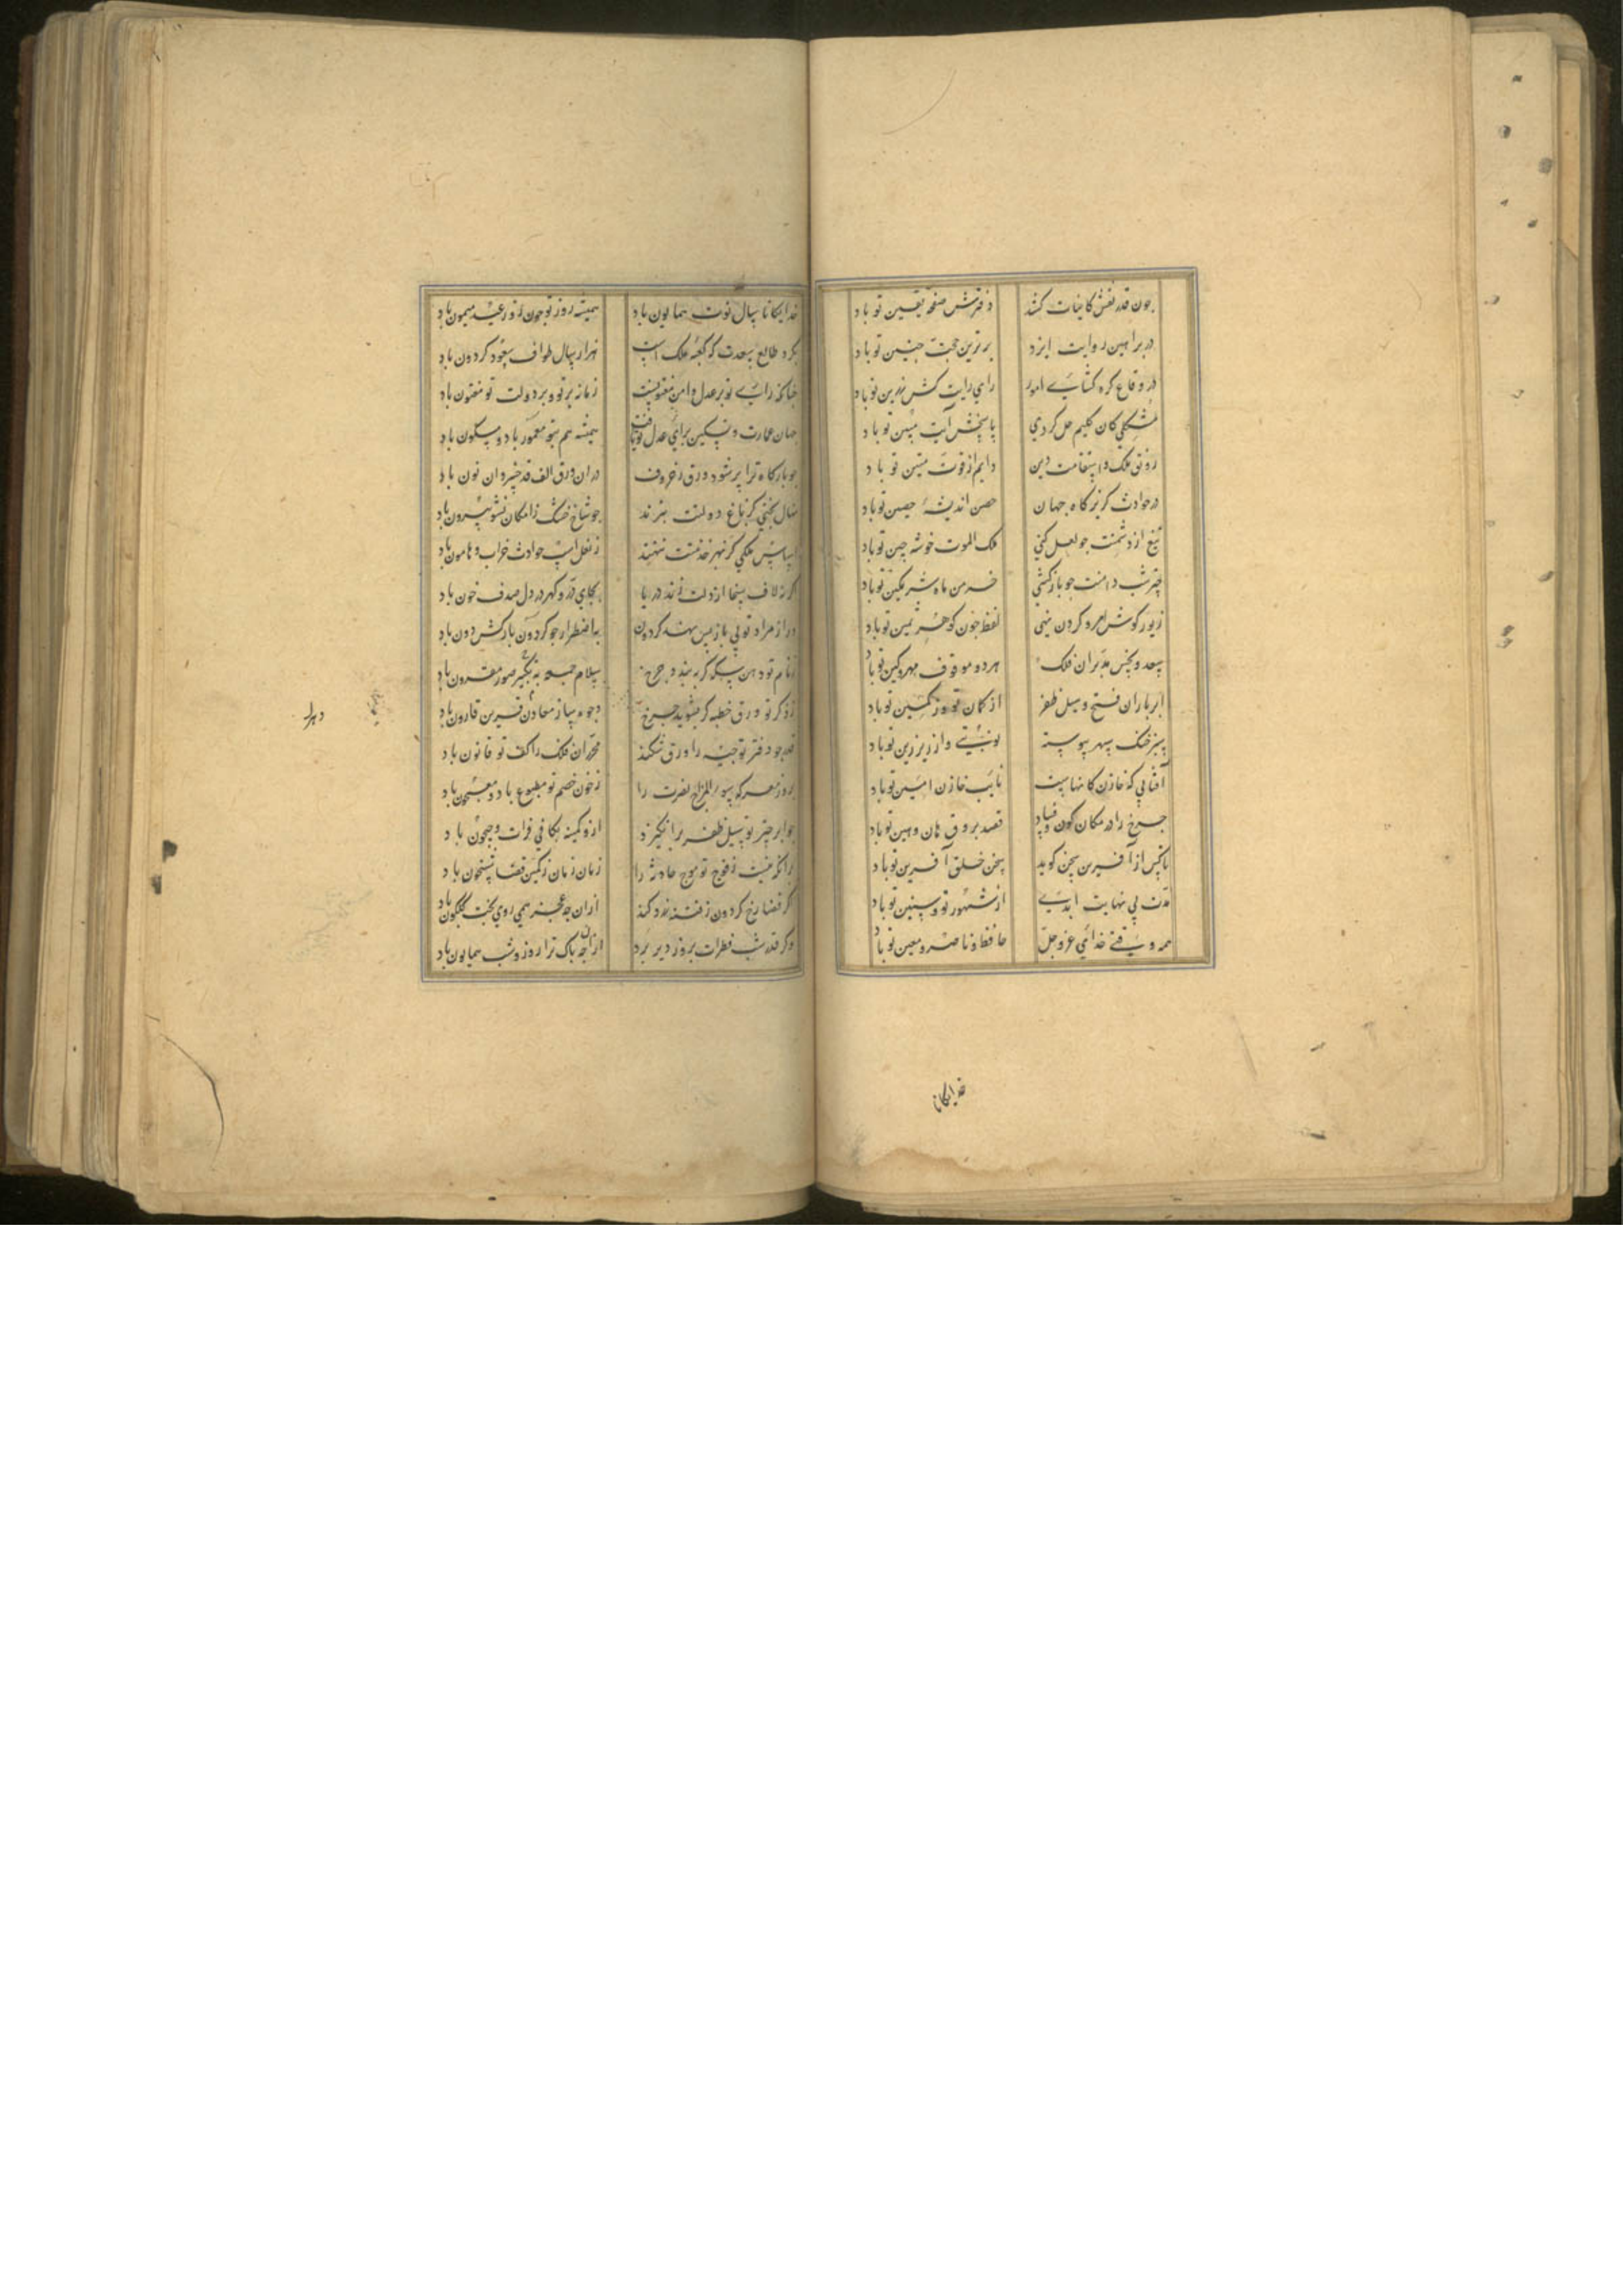 چون قدر نقش کاینات کشد دفترش صفحهٔ یقین تو باد
در براهین روایت ایزد برترین حجت جنین تو باد
در وقاع کره کشای امور رای رایت کش رزین تو باد
مشکلی کان کلیم حل کردی پاسخش آیت مبین تو باد
رونق ملک و استقامت دین دایم از قوت متین تو باد
در حوادث کریزکاه جهان حصن اندیشهٔ حصین تو باد
تیغ از دشمنت جو لعل کنی ملک الموت خوشه جین تو باد
چترشب دامنت جو بازکشی خرمن ماه شرمکین تو باد
زیور کوش امرد کردن نهی لفظ جون کوهر ثمین تو باد
سعد و نحس مدبران فلک هر دو موقوف مهر و کین تو باد
ابر باران فتح و سیل ظفر از کمان تو وز کمین تو باد
سبز خنک سپهر پیوسته نوبتی وار زیر زین تو باد
آفتابی که خازن کانهاست نایب خازن امین تو باد
جرخ را در مکان کون و فساد قصد بر وفق هان و هین تو باد
تا کس از آفرین سخن کوید سخن خلق آفرین تو باد
مدت بی نهایت ابدی از شهور تو و سنین تو باد
همه وقتی خدای عز و جل حافظ و ناصر و معین تو باد
خدایکانا
خدایکانا سال نوت همایون باد همیشه روز تو جون روز عید میمون باد
بکرد طالع سعدت که کعبهٔ فلک است هزار سال طواف سعود کردون باد
جنانکه رای تو بر عدل و امن مفتونست زمانه بر تو و بر دولت تو مفتون باد
جهان عمارت و تسکین برای عدل تو یافت همیشه هم بتو معمور باد و مسکون باد
جو بارکاه ترا پر شود ورق ز حروف دران ورق الف قد خسروان نون باد
نهال بختی کز باغ دولتت ببرند جو شاخ خشک ز امکان نشو بیرون باد
اساس ملکی کز بهر خدمتت ننهند ز نعل اسب حوادث خراب و هامون باد
اکر نه لاف سخا از دلت زند دریا بجای در و کهر در دل صدف خون باد
ور از مراد تو پی باز پس نهد کردون باضطرار جو کردون بارکش دون باد
ز نام تو دهن سکه کر ببندد جرخ سلام جمعه به تکبیر صور مقرون باد
ز ذکر تو ورق خطبه کر بشوید جرخ وجوه ساز معادن قرین قارون باد
قدر جو دفتر توجیه را ورق شکند محرران فلک را کف تو قانون باد
بروز معرکه سوء المزاج نصرت را ز خون خصم تو مطبوع باد و معجون باد
جو ابر چتر تو سیل ظفر برانکیزد ازو کمینه بکافی فرات و جیحون باد
برانکه نیست ز فوج تو موج حادثه را زمان زمان ز کمین قضا شبیخون باد
کر قضا رخ کردون ز فتنه زرد کند ازان جه غم ز می روی بخت کلکون باد
وکر قدر شب فطرات بروز دیر برد ازان جه باک ترا روز و شب همایون باد